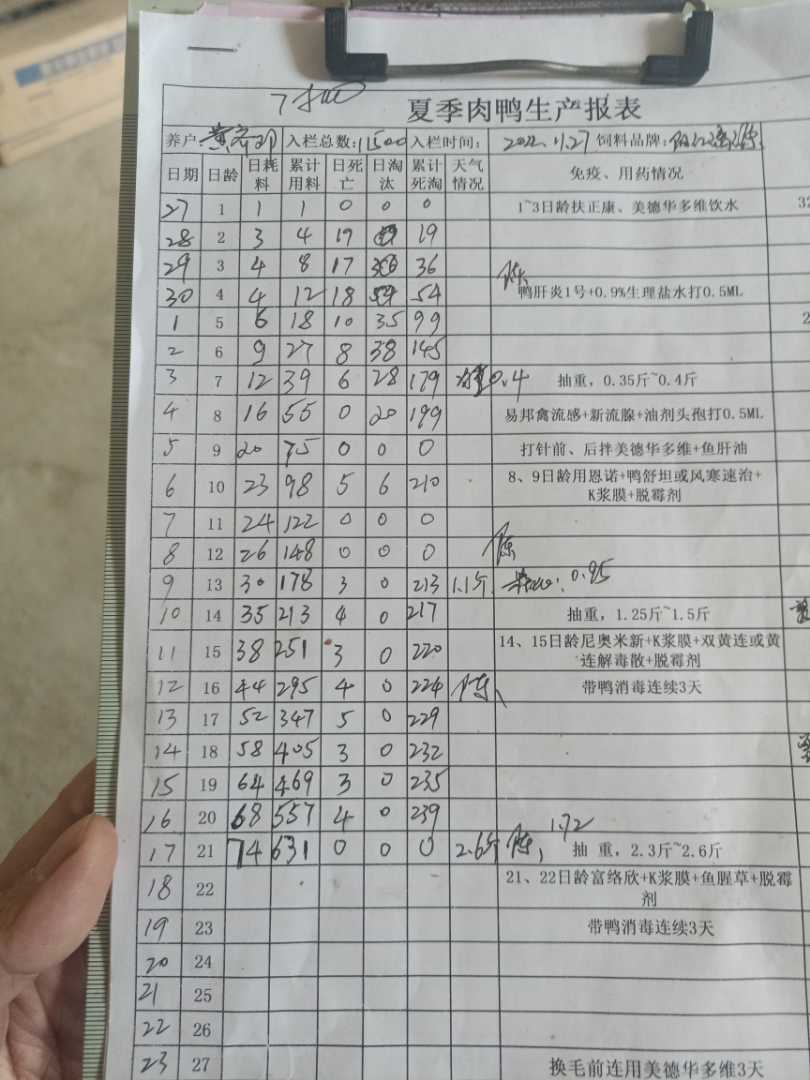 夏季肉鸭生产报表
养户: 入栏总数:11500 入栏时间: 2022.11.27 饲料品牌:
日期 日龄 日耗料 累计用料 日死亡 日淘汰 累计死淘 天气情况 免疫、用药情况
27 1 1 1 0 0 0 1~3日龄扶正康、美德华多维饮水 32
28 2 3 4 19 19
29 3 4 8 17 36 陈
30 4 4 12 18 54 鸭肝炎1号+0.9%生理盐水打0.5ML
1 5 6 18 10 35 99 2
2 6 9 27 8 38 145
3 7 12 39 6 28 179 0.4 抽重，0.35斤~0.4斤
4 8 16 55 0 20 199 易邦禽流感+新流腺+油剂头孢打0.5ML
5 9 20 75 0 0 0 打针前、后拌美德华多维+鱼肝油
6 10 23 98 5 6 210 8、9日龄用恩诺+鸭舒坦或风寒速治+
K浆膜+脱霉剂
7 11 24 122 0 0 0
8 12 26 148 0 0 0 陈
9 13 30 178 3 0 213 1.1斤 0.95
10 14 35 213 4 0 217 抽重，1.25斤~1.5斤
11 15 38 251 3 0 220 14、15日龄尼奥米新+K浆膜+双黄连或黄
连解毒散+脱霉剂
12 16 44 295 4 0 224 陈 带鸭消毒连续3天
13 17 52 347 5 0 229
14 18 58 405 3 0 232
15 19 64 469 3 0 235
16 20 68 557 4 0 239
17 21 74 631 0 0 0 2.6斤 陈, 1.72 抽 重，2.3斤~2.6斤
18 22 21、22日龄富络欣+K浆膜+鱼腥草+脱霉
剂
19 23 带鸭消毒连续3天
20 24
21 25
22 26
23 27 换毛前连用美德华多维3天